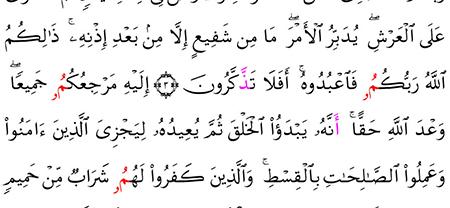 عَلَى ٱلْعَرْشِۖ يُدَبِّرُ ٱلْأَمْرَۖ مَا مِن شَفِيعٍ إِلَّا مِنۢ بَعْدِ إِذْنِهِۦۚ ذَٰلِكُمُ
ٱللَّهُ رَبُّكُمُۥ فَٱعْبُدُوهُۚ أَفَلَا تَذَّكَّرُونَ ٣ إِلَيْهِ مَرْجِعُكُمُۥ جَمِيعًاۖ
وَعْدَ ٱللَّهِ حَقًّاۚ أَنَّهُۥ يَبْدَؤُا۟ ٱلْخَلْقَ ثُمَّ يُعِيدُهُۥ لِيَجْزِىَ ٱلَّذِينَ ءَامَنُوا۟
وَعَمِلُوا۟ ٱلصَّٰلِحَٰتِ بِٱلْقِسْطِۚ وَٱلَّذِينَ كَفَرُوا۟ لَهُمُۥ شَرَابٌ مِّنْ حَمِيمٍ